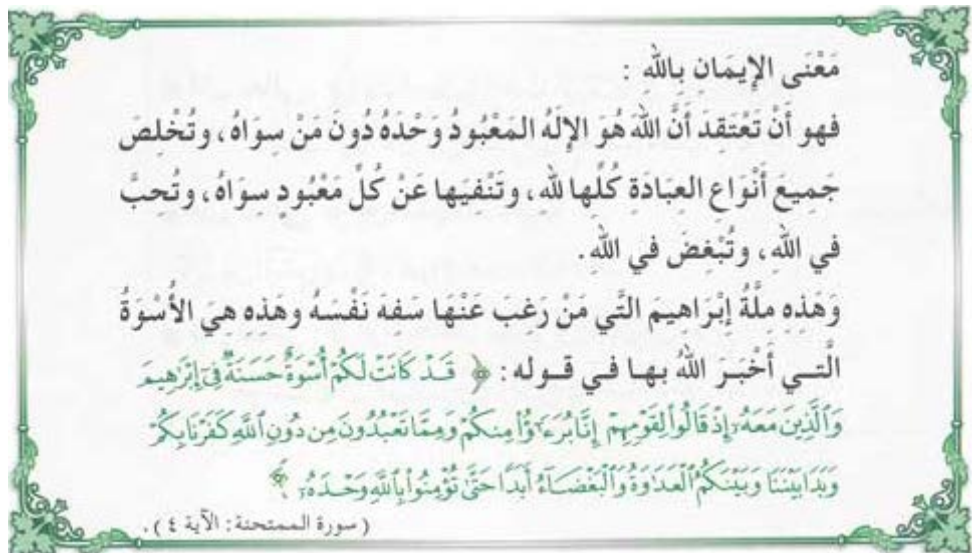 مَعْنَى الإِيمَانِ بِاللهِ :
فهو أَنْ تَعْتَقِدَ أَنَّ اللهَ هُوَ الإِلَهُ المَعْبُودُ وَحْدَهُ دُونَ مَنْ سِوَاهُ، وتُخْلِصَ
جَمِيعَ أَنْوَاعِ العِبَادَةِ كُلَّها لله، وتَنْفيَها عَنْ كُلِّ مَعْبُودٍ سِوَاهُ، وتُحبَّ
في اللهِ، وتُبْغِضَ في اللهِ.
وَهَذِهِ مِلَّةُ إِبْرَاهِيمَ التَّي مَنْ رَغِبَ عَنْهَا سَفِهَ نَفْسَهُ وهَذِهِ هِيَ الأُسْوَةُ
الَّتـي أَخْبَـرَ اللهُ بهـا فـي قـوله: ﴿ قَدْ كَانَتْ لَكُمْ أُسْوَةٌ حَسَنَةٌ فِىٓ إِبْرَٰهِيمَ
وَٱلَّذِينَ مَعَهُۥٓ إِذْ قَالُوا۟ لِقَوْمِهِمْ إِنَّا بُرَءَٰٓؤُا۟ مِنكُمْ وَمِمَّا تَعْبُدُونَ مِن دُونِ ٱللَّهِ كَفَرْنَا بِكُمْ
وَبَدَا بَيْنَنَا وَبَيْنَكُمُ ٱلْعَدَٰوَةُ وَٱلْبَغْضَآءُ أَبَدًا حَتَّىٰ تُؤْمِنُوا۟ بِٱللَّهِ وَحْدَهُۥٓ ﴾
(سورة الممتحنة: الآية ٤).